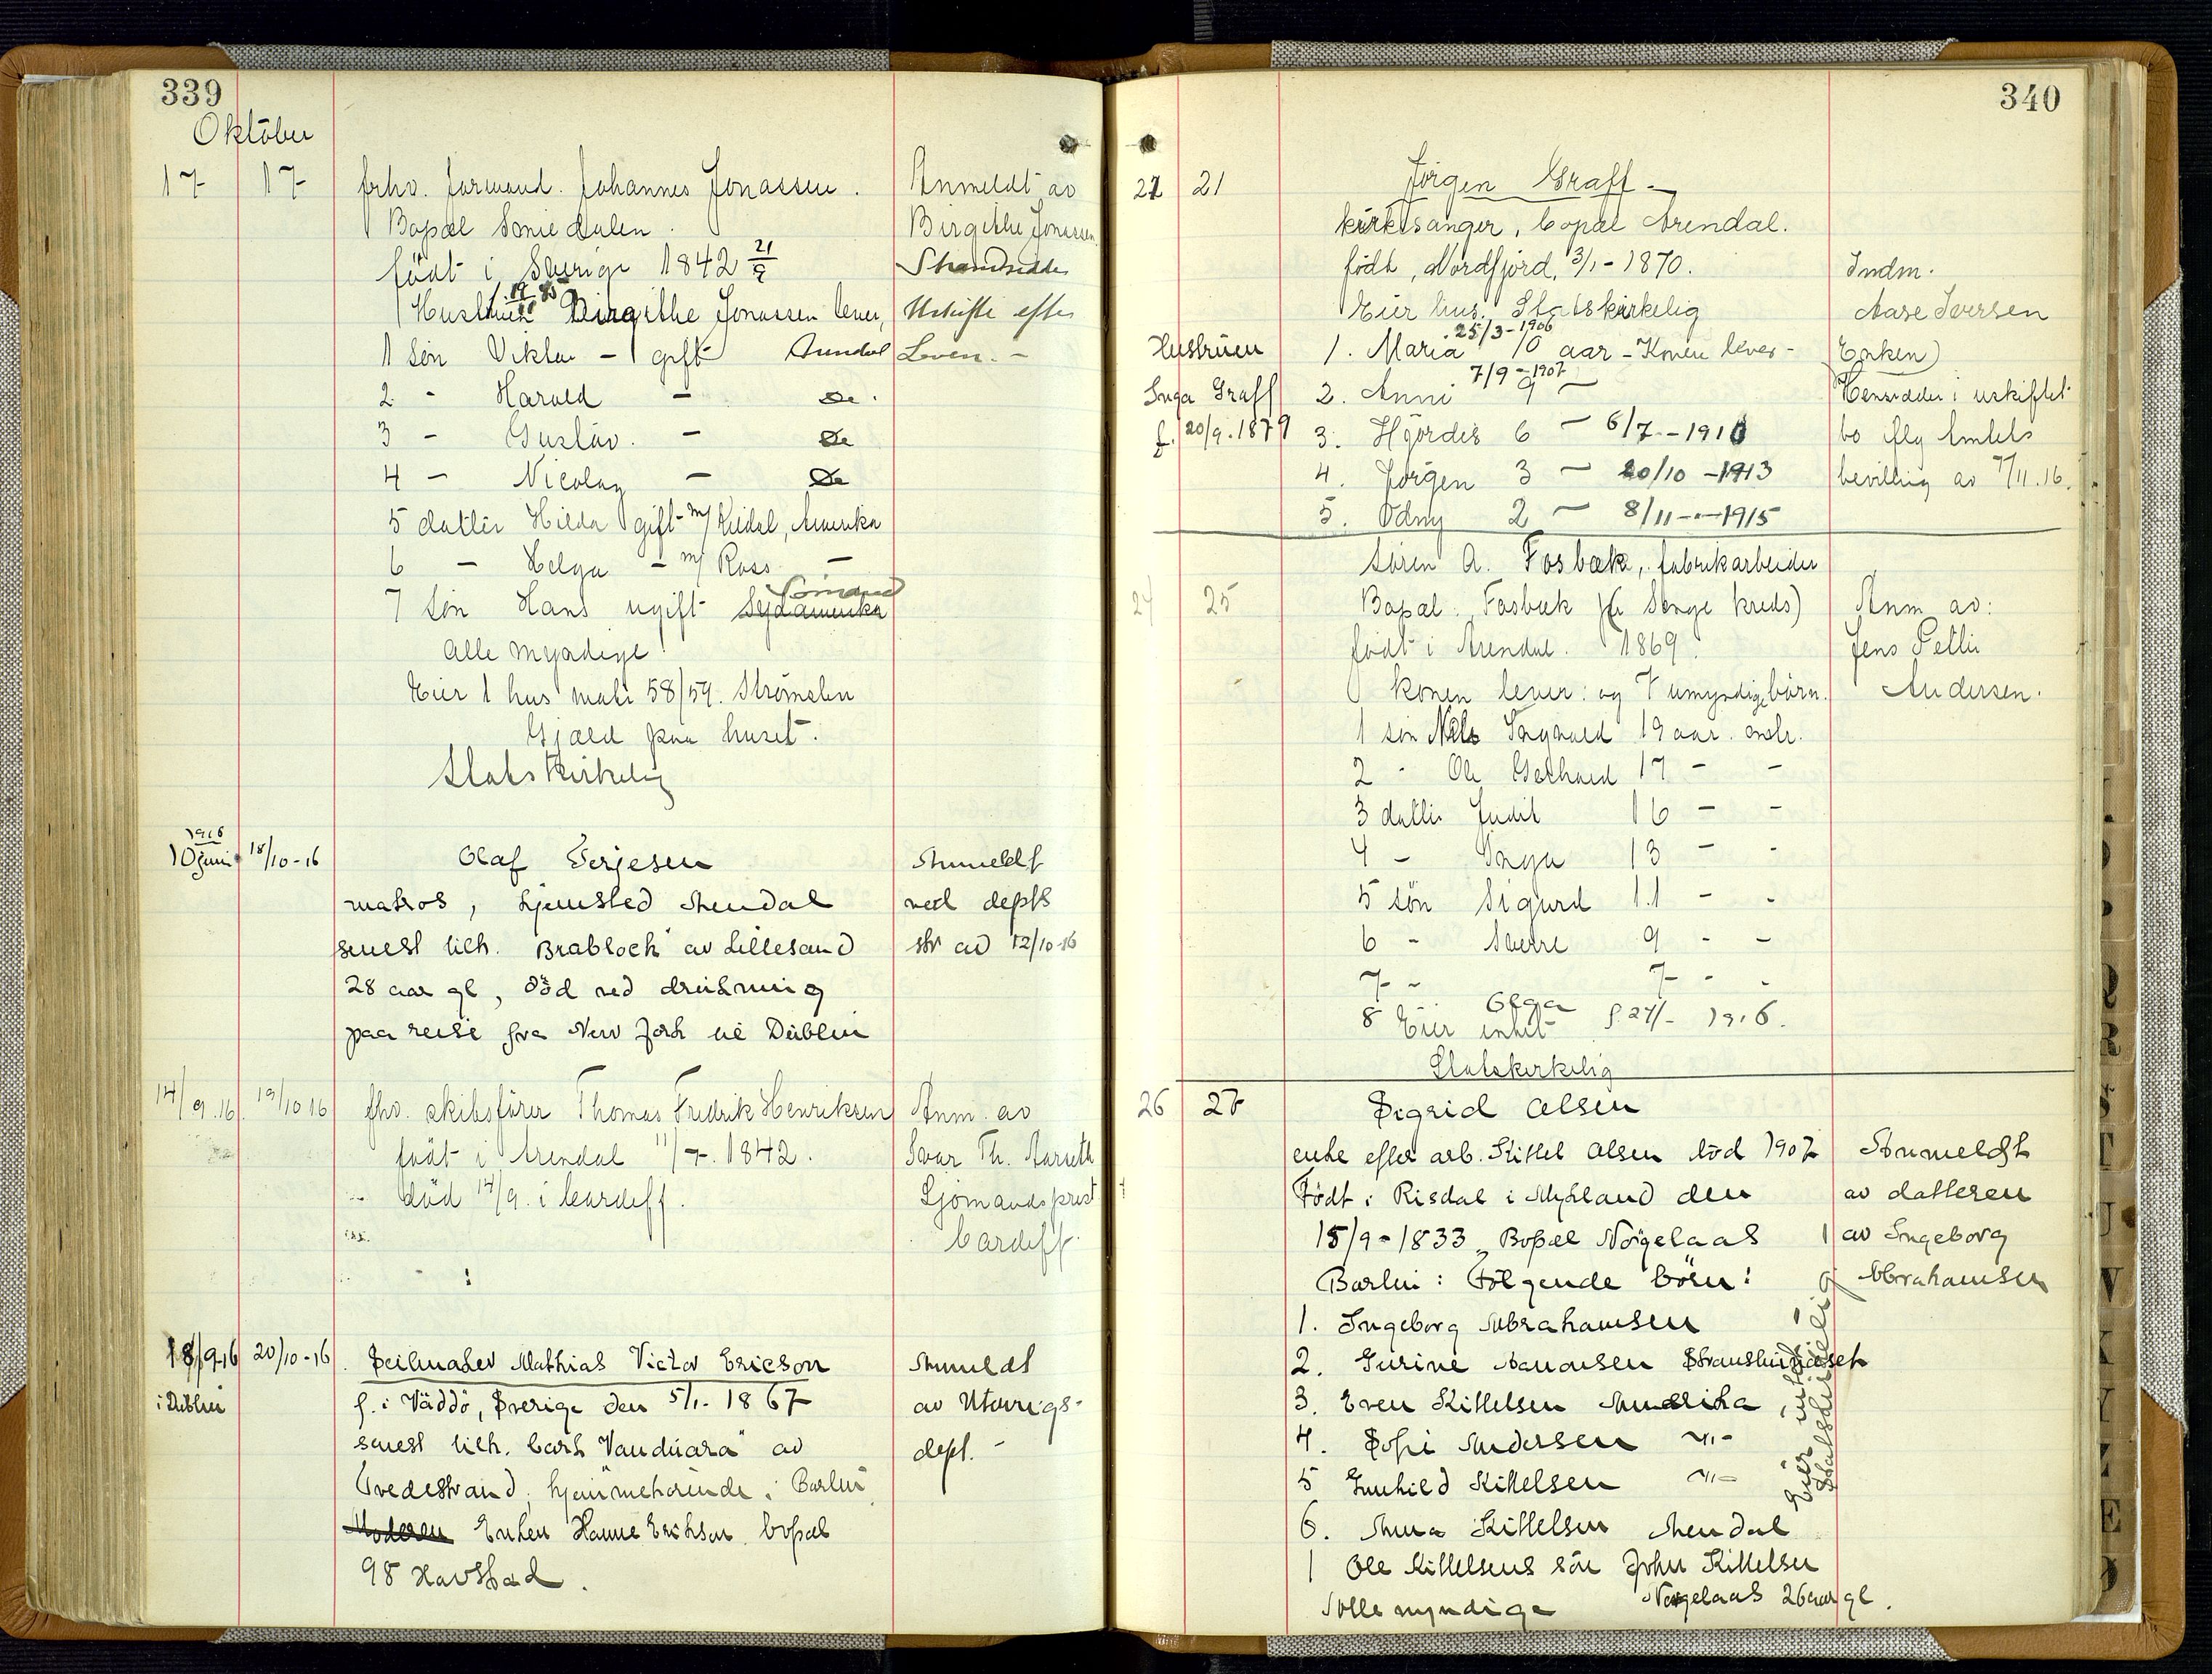 339
Oktober
17 17 frhv. formand. Johannes Jonassen. Anmeldt av
Bopæl Songedalen. Birgithe Jonassen
født i Sverige 1842 21/9 Strandsedde
Hustruen Birgithe Jonassen lever, Uskifte efter
1 søn Viktor - gift Arendal Loven. -
2 - Harald - Do.
3 - Gustav. - Do
4 - Nicolay - Do
5 datter Hilda gift m/ Amerika
6 - Helga - m/ Ross -
7 søn Hans ugift Sydamerika Sømand
alle myndige
Eier 1 hus matr 58/59. Strømsbu
Gjæld paa huset.
Statskirkelig
1916
10 juni 18/10-16 Olaf Terjesen Anmeldt
matros, hjemsted Arendal ved depts
senest tilh. "Brabloch" av Lillesand skr av 12/10-16
28 aar gl, død ved drukning
paa reise fra New York til Dublin
14/9.16. 19/10 16 fhv. skibsfører Thomas Fredrik Henriksen Anm. av
født i Arendal 11/7. 1842. Ivar Th. Aarseth
- død 14/9. i Cardiff. Sjømandsprest
Cardiff.
18/9-16 20/10-16 Seilmaker Mathias Victor Ericson Anmeldt
i Dublin f. i Väddö, Sverige den 5/1. 1867 av Utenrigs-
senest tilh. bark "Vanduara" av dept. -
Tvedestrand, hjemmehørende i Barbu
Moderen Enken Hanne Erikson. bopæl
98 Havstad.
340
21 21 Jørgen Graff -
kirkesanger, bopæl Arendal.
født, Nordfjord, 3/1 - 1870. Indm.
Eier hus. Statskirkelig Aase Iversen
Hustruen 1. Maria 25/3-1906 10 aar - Konen lever - Enken)
Inga Graff 2. Anni 7/9-1907 9 - Hensidder i uskiftet
f. 20/9.1879 3. Hjørdis 6 - 6/7-1910 bo iflg Embets
4. Jørgen 3 - 20/10-1913 bevilling av 7/11.16.
5. Odny 2 - 8/11--1915
Søren A. Fosbæk, fabrikarbeider
24 25 Bopæl: Fosbæk (i Songe kreds) Anm av:
født i Arendal. 1869. Jens Petter
konen lever: og 7 umyndige børn. Andersen.
1 søn Nils Ingvald 19 aar.
2 - Ole Gerhard 17 - -
3 datter Judit 16 - -
4 - Inga 13 - -
5 søn Sigurd 11 - -
6 - Sverre 9 - -
7 - 7 - -
8 Olga f. 27/- 1916.
Eier intet
Statskirkelig
26 27 Sigrid Olsen
enke efter arb. Kittel Olsen død 1907 Anmeldt
Født i Risdal i Mykland den av datteren
15/9-1833 Bopæl Nøgelaas av Ingeborg
Barbu: Følgende børn: Abrahamsen
1. Ingeborg Abrahamsen
2. Gurine Aanonsen
3. Even Kittelsen Amerika
4. Sofi Andersen -"-
5 Gunhild Kittelsen -"-
6. Anna Kittelsen Arendal
1 Ole Kittelsens søn John Kittelsen
Nøgelaas 26 aar gl.
Alle myndige
Eier intet -
Statskirkelig